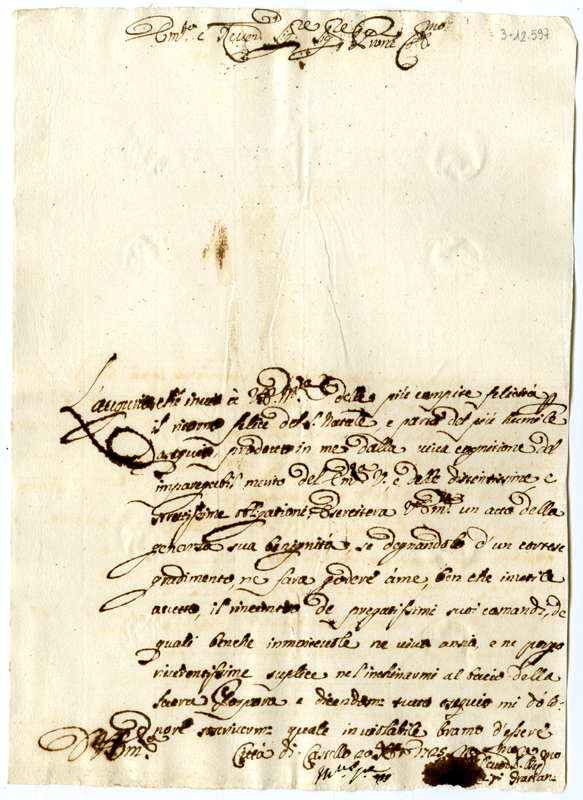 Em.mo e Reveren Sig.re Sig.re Prone Col.mo
3-12-597
L'augurio che invio à V. Em.za delle più compite felicità
il ritorno felice del S. Natale, è parto del più humile
ossequio, prodotto in me dalla viva cognitione del
impareggiabil merito del Em.V., e delle distintissime e
strettissime obligationi. Eserciterà V. Em. un atto della
generosa sua benignità, se degnandolo d'un cortese
gradimento ne farà godere à me, ben che inutile
il rincontro de pregatissimi suoi comandi, de
quali benche immeritevole ne vivo ansio, e ne porgo
riverentissime suplice nel'inchinarmi al bacio della
Sacra Porpora e dicandomi tutto ossequio mi do l'o-
nore soscrivermi quale inviolabile bramo d'essere
D V Em.
Città di Castello 20 Xbre 1725